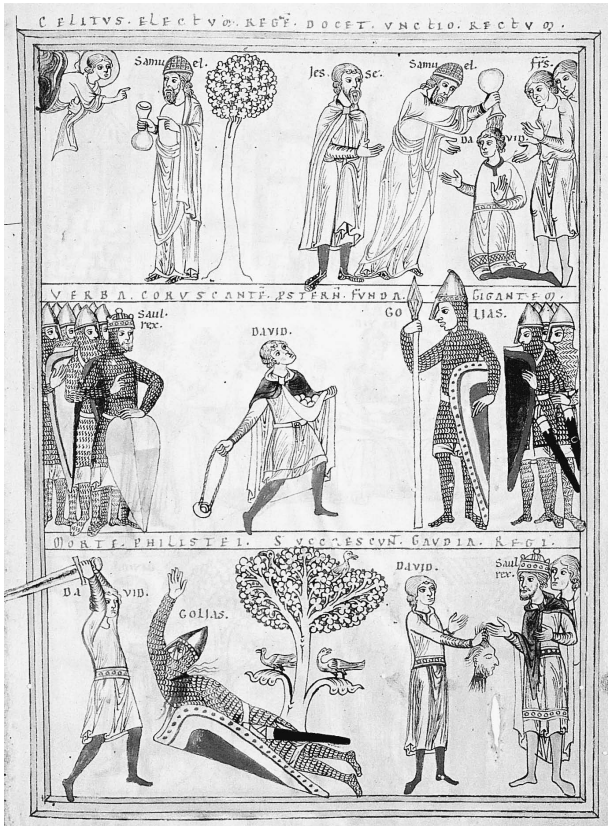 CELITUS. ELECTVM. REGĒ. DOCET. VNCTIO. RECTVM.
Samuel.
Jesse.
Samuel.
frs.
DAVID.
VERBA. CORVSCANTĒ. FUNDA. GIGANTEM.
Saul rex.
DAVID.
GOLIAS.
MORTE. PHILISTEI. SVCCRESCVNT. GAVDIA. REGI.
DAVID.
GOLIAS.
DAVID.
Saul rex.